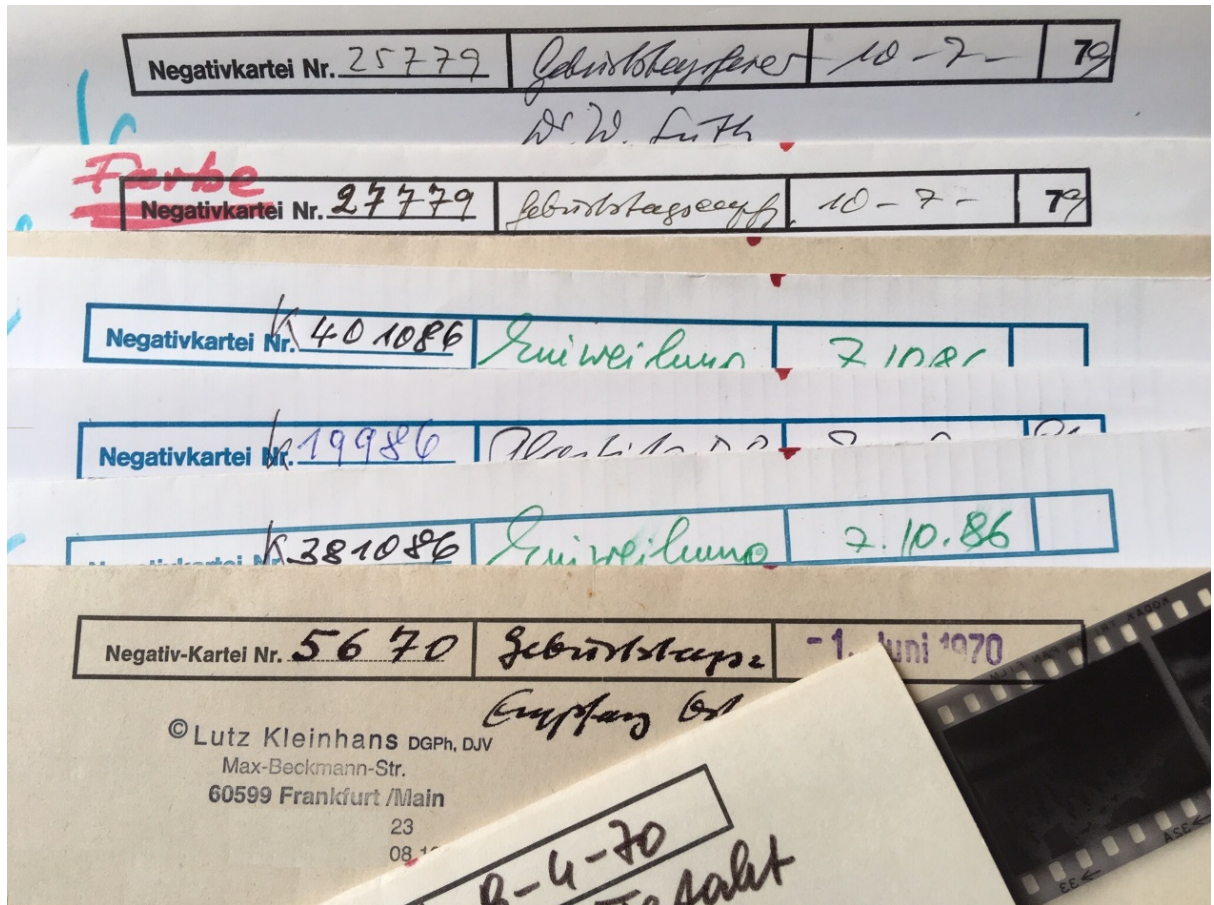 Negativkartei Nr. 25779 Geburtstagsfeier 10-7- 79
Dr. W.
Farbe
Negativkartei Nr. 27779 Geburtstagsempf. 10-7- 79
Negativkartei Nr. K 401086 Einweihung 7.10.86
Negativkartei Nr. K 19986
K 381086 Einweihung 7.10.86
Negativ-Kartei Nr. 5670 Geburtstags= -1. Juni 1970
Empfang
© Lutz Kleinhans DGPh, DJV
Max-Beckmann-Str.
60599 Frankfurt /Main
23
08
-4-70
KODAK